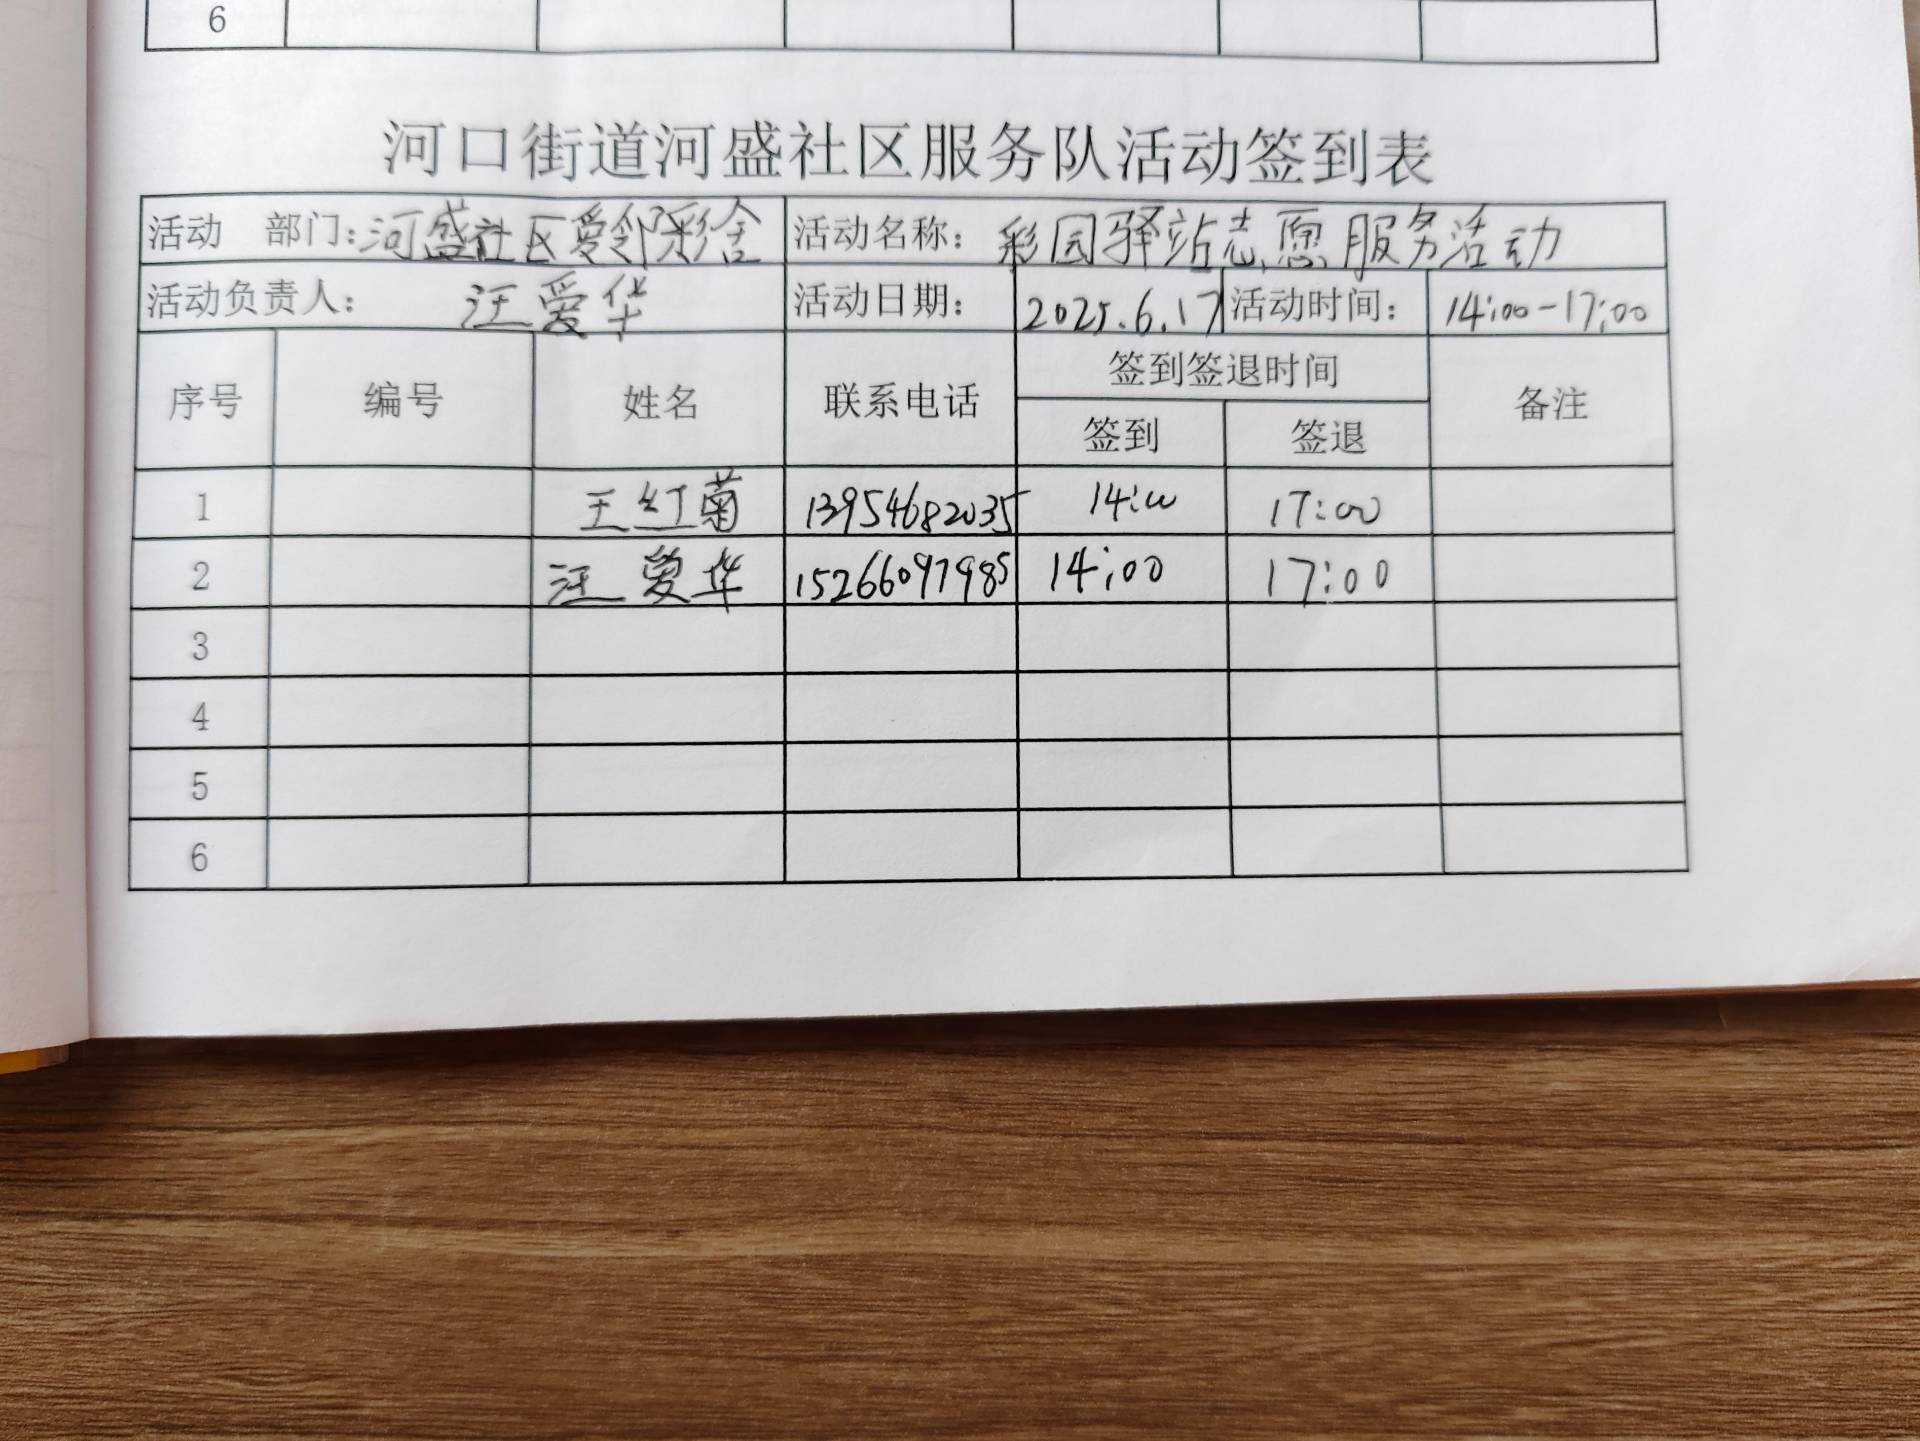 6
河口街道河盛社区服务队活动签到表
活动 部门:河盛社区爱邻彩舍 活动名称: 彩园驿站志愿服务活动
活动负责人: 汪爱华 活动日期: 2025.6.17 活动时间: 14:00-17:00
序号 编号 姓名 联系电话 签到签退时间 备注
签到 签退
1 王红菊 13954682035 14:00 17:00
2 汪爱华 15266097985 14:00 17:00
3
4
5
6